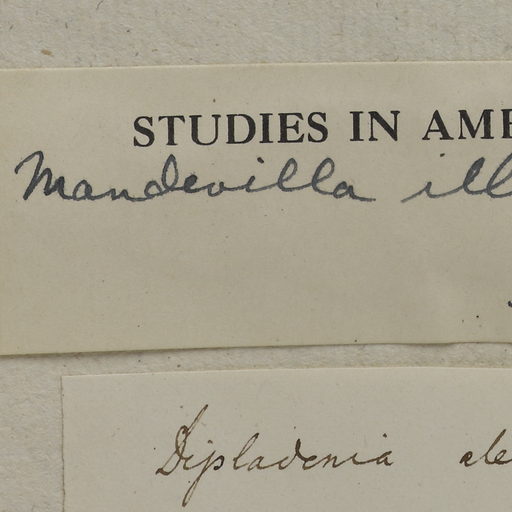 STUDIES IN AME
Mandevilla ill
Dipladenia ele